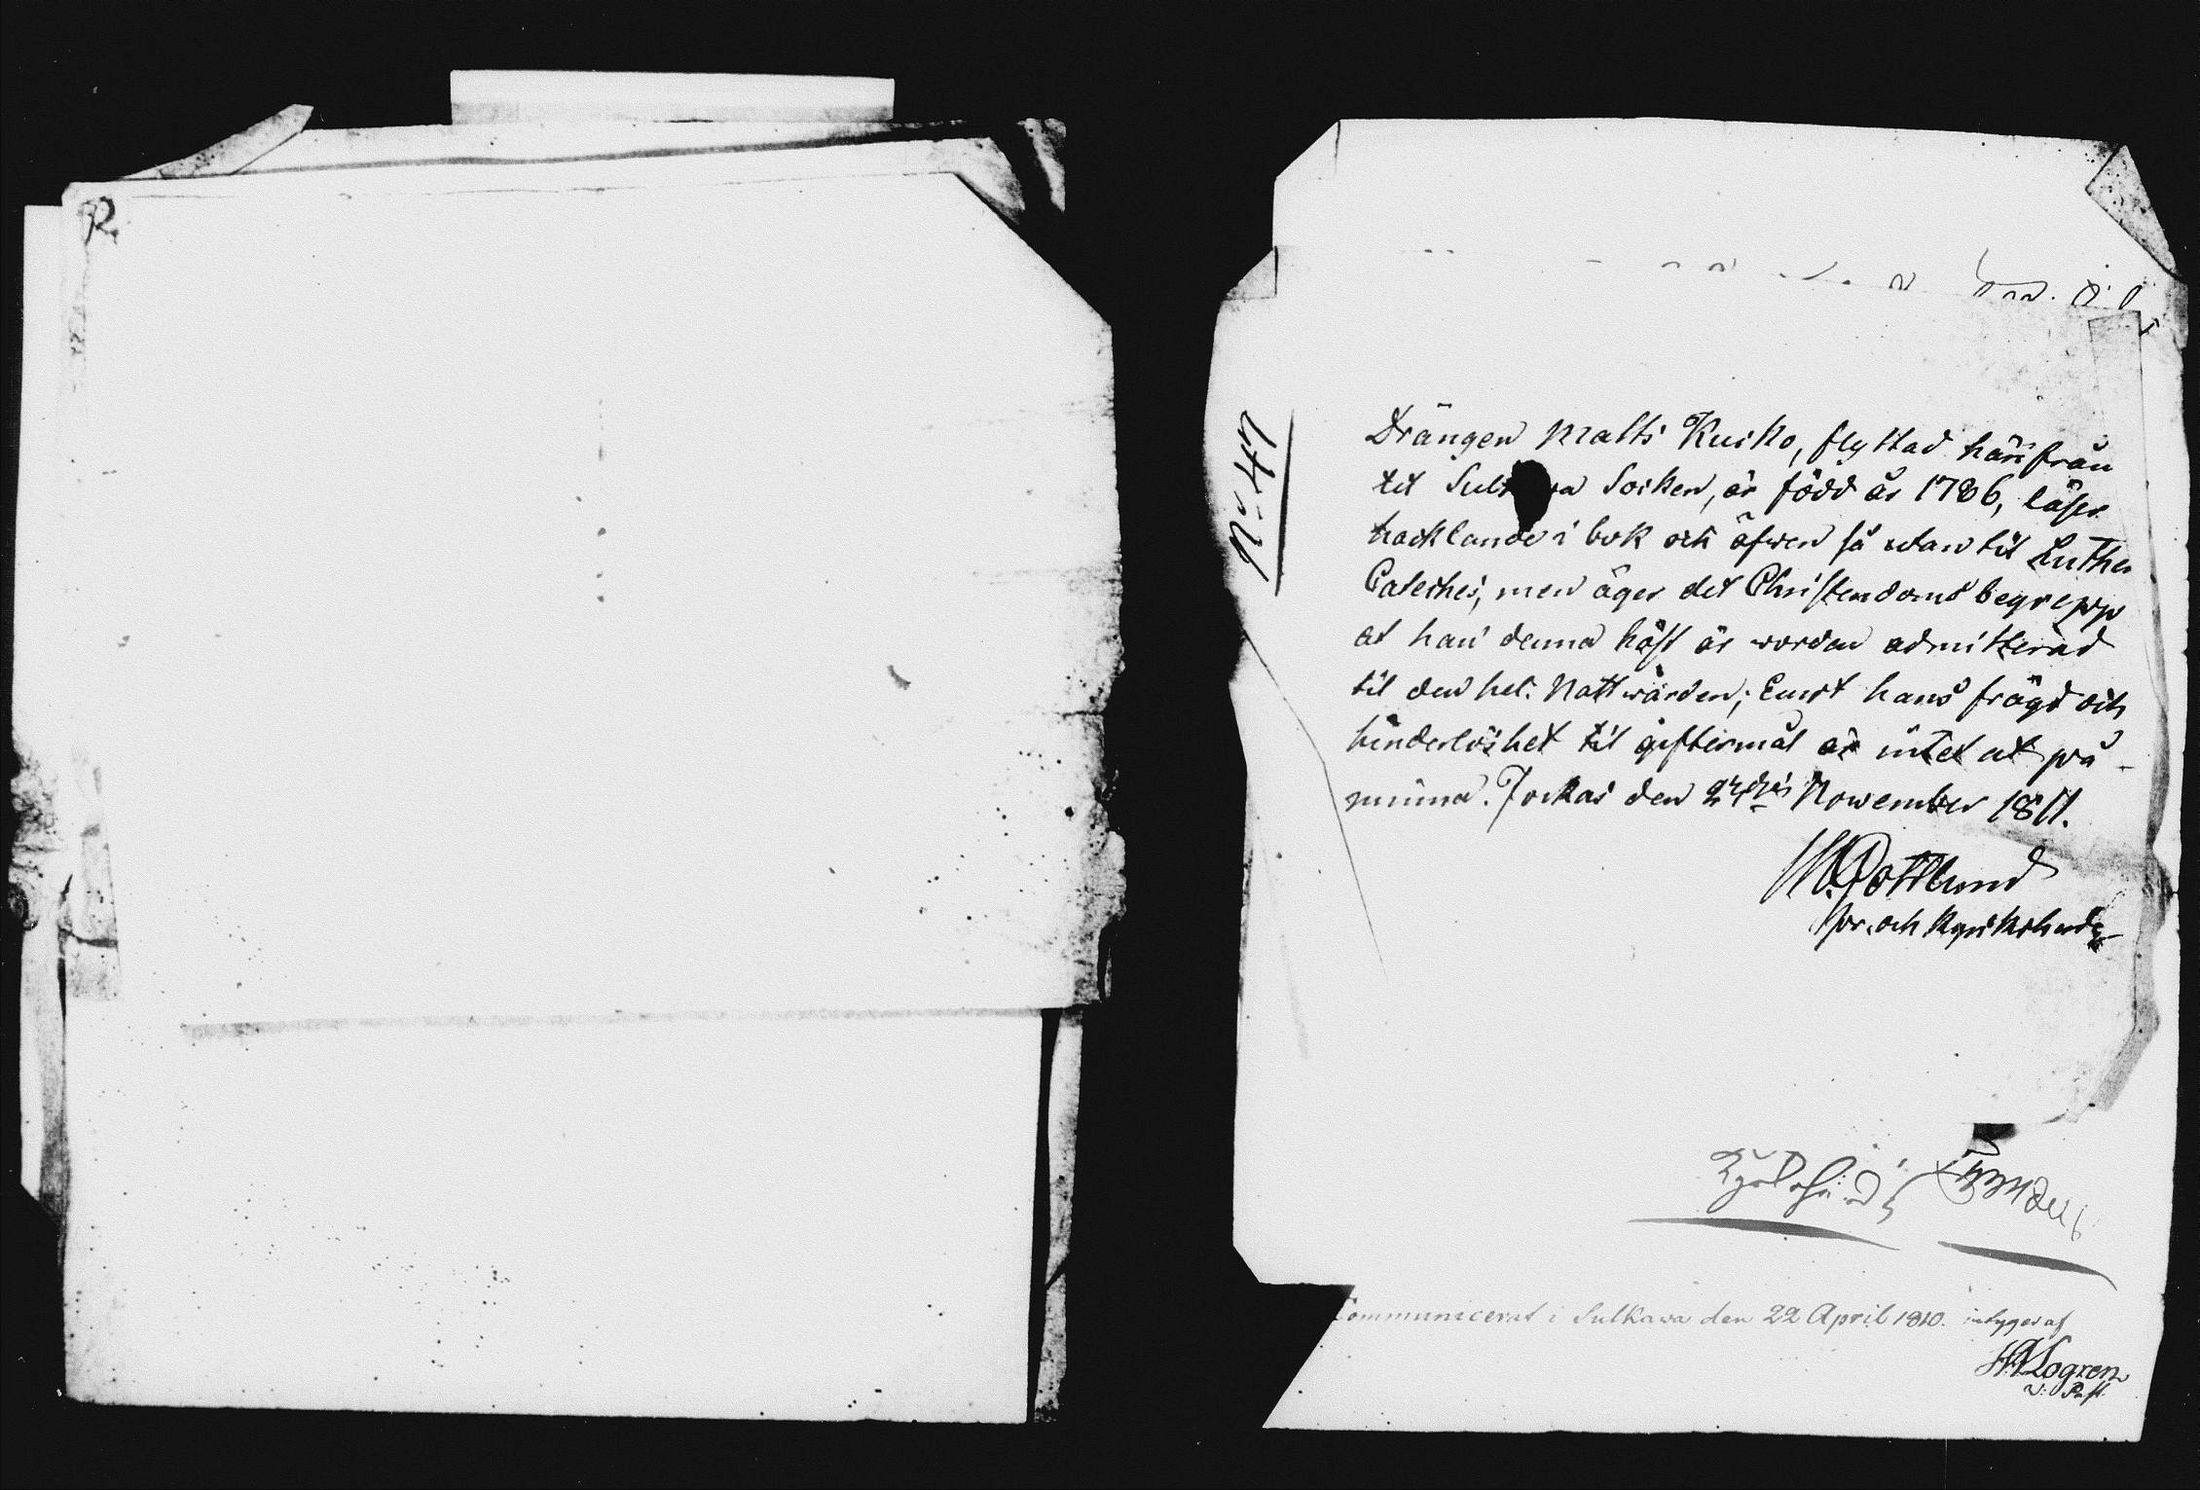 N:o 47
Drängen Matts Kuikko, flyttad härifrån
til Sulkava Socken, är född år 1786, läser
hacklande i bok och äfwen så utan til Luthe
Cateches, men äger det Christendoms begrepp
at han denna höst är worden admitterad
til den hel. Nattwarden; Emot hans frägd och
hinderlöshet til giftermål är intet at på-
minna. Jockas den November 1811.
M. Gottlund
pr. och Kyrkoherde
Communicerat i Sulkava den 22 April 1810. intygas af
Logren
v: Past.